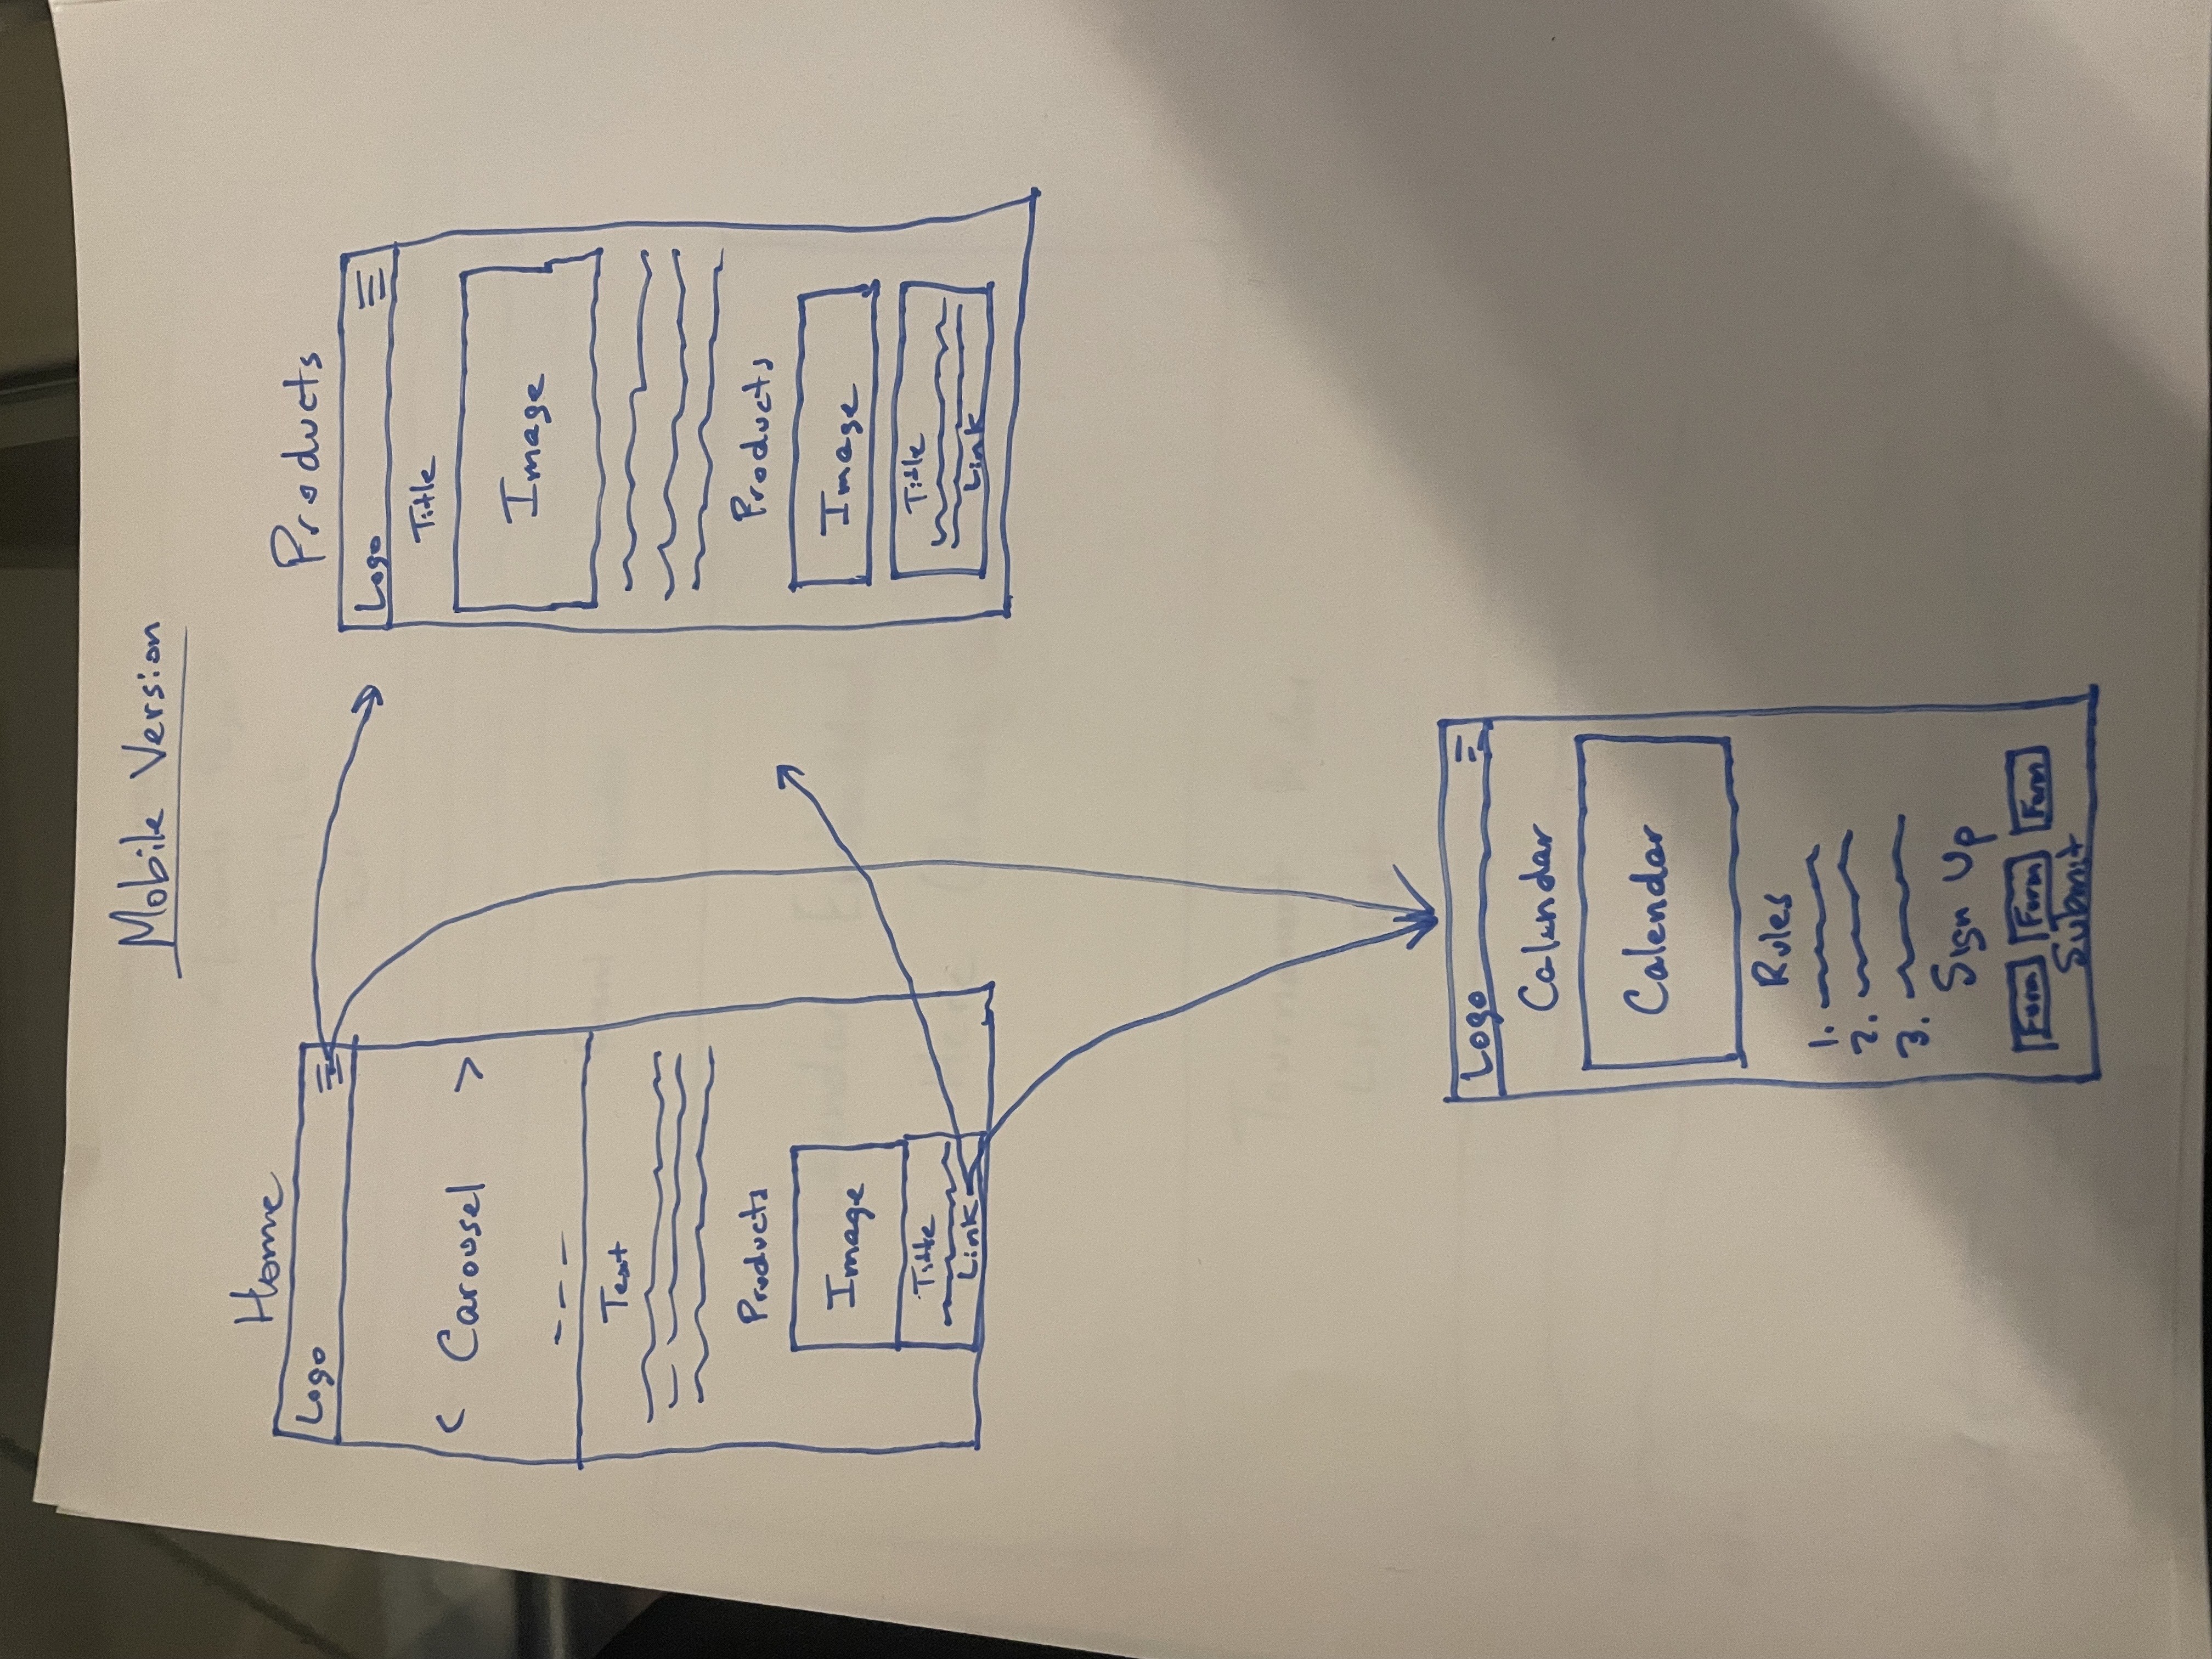 Mobile Version
Home
Logo
< Carousel >
Text
Products
Image
Title
Link
Products
Logo
Title
Image
Products
Image
Title
Link
Logo
Calendar
Calendar
Rules
1.
2.
3.
Sign Up
Form Form Form
Submit